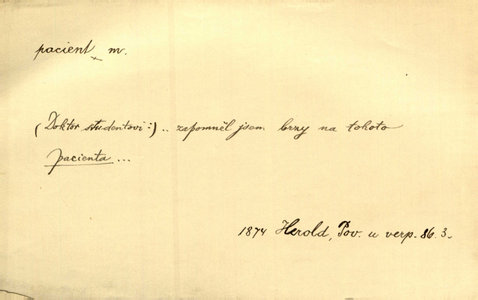 pacient m.
(Doktor studentovi:) .. zapomněl jsem brzy na tohoto
pacienta ...
1874 Herold, Pov. u verp. 86. 3.